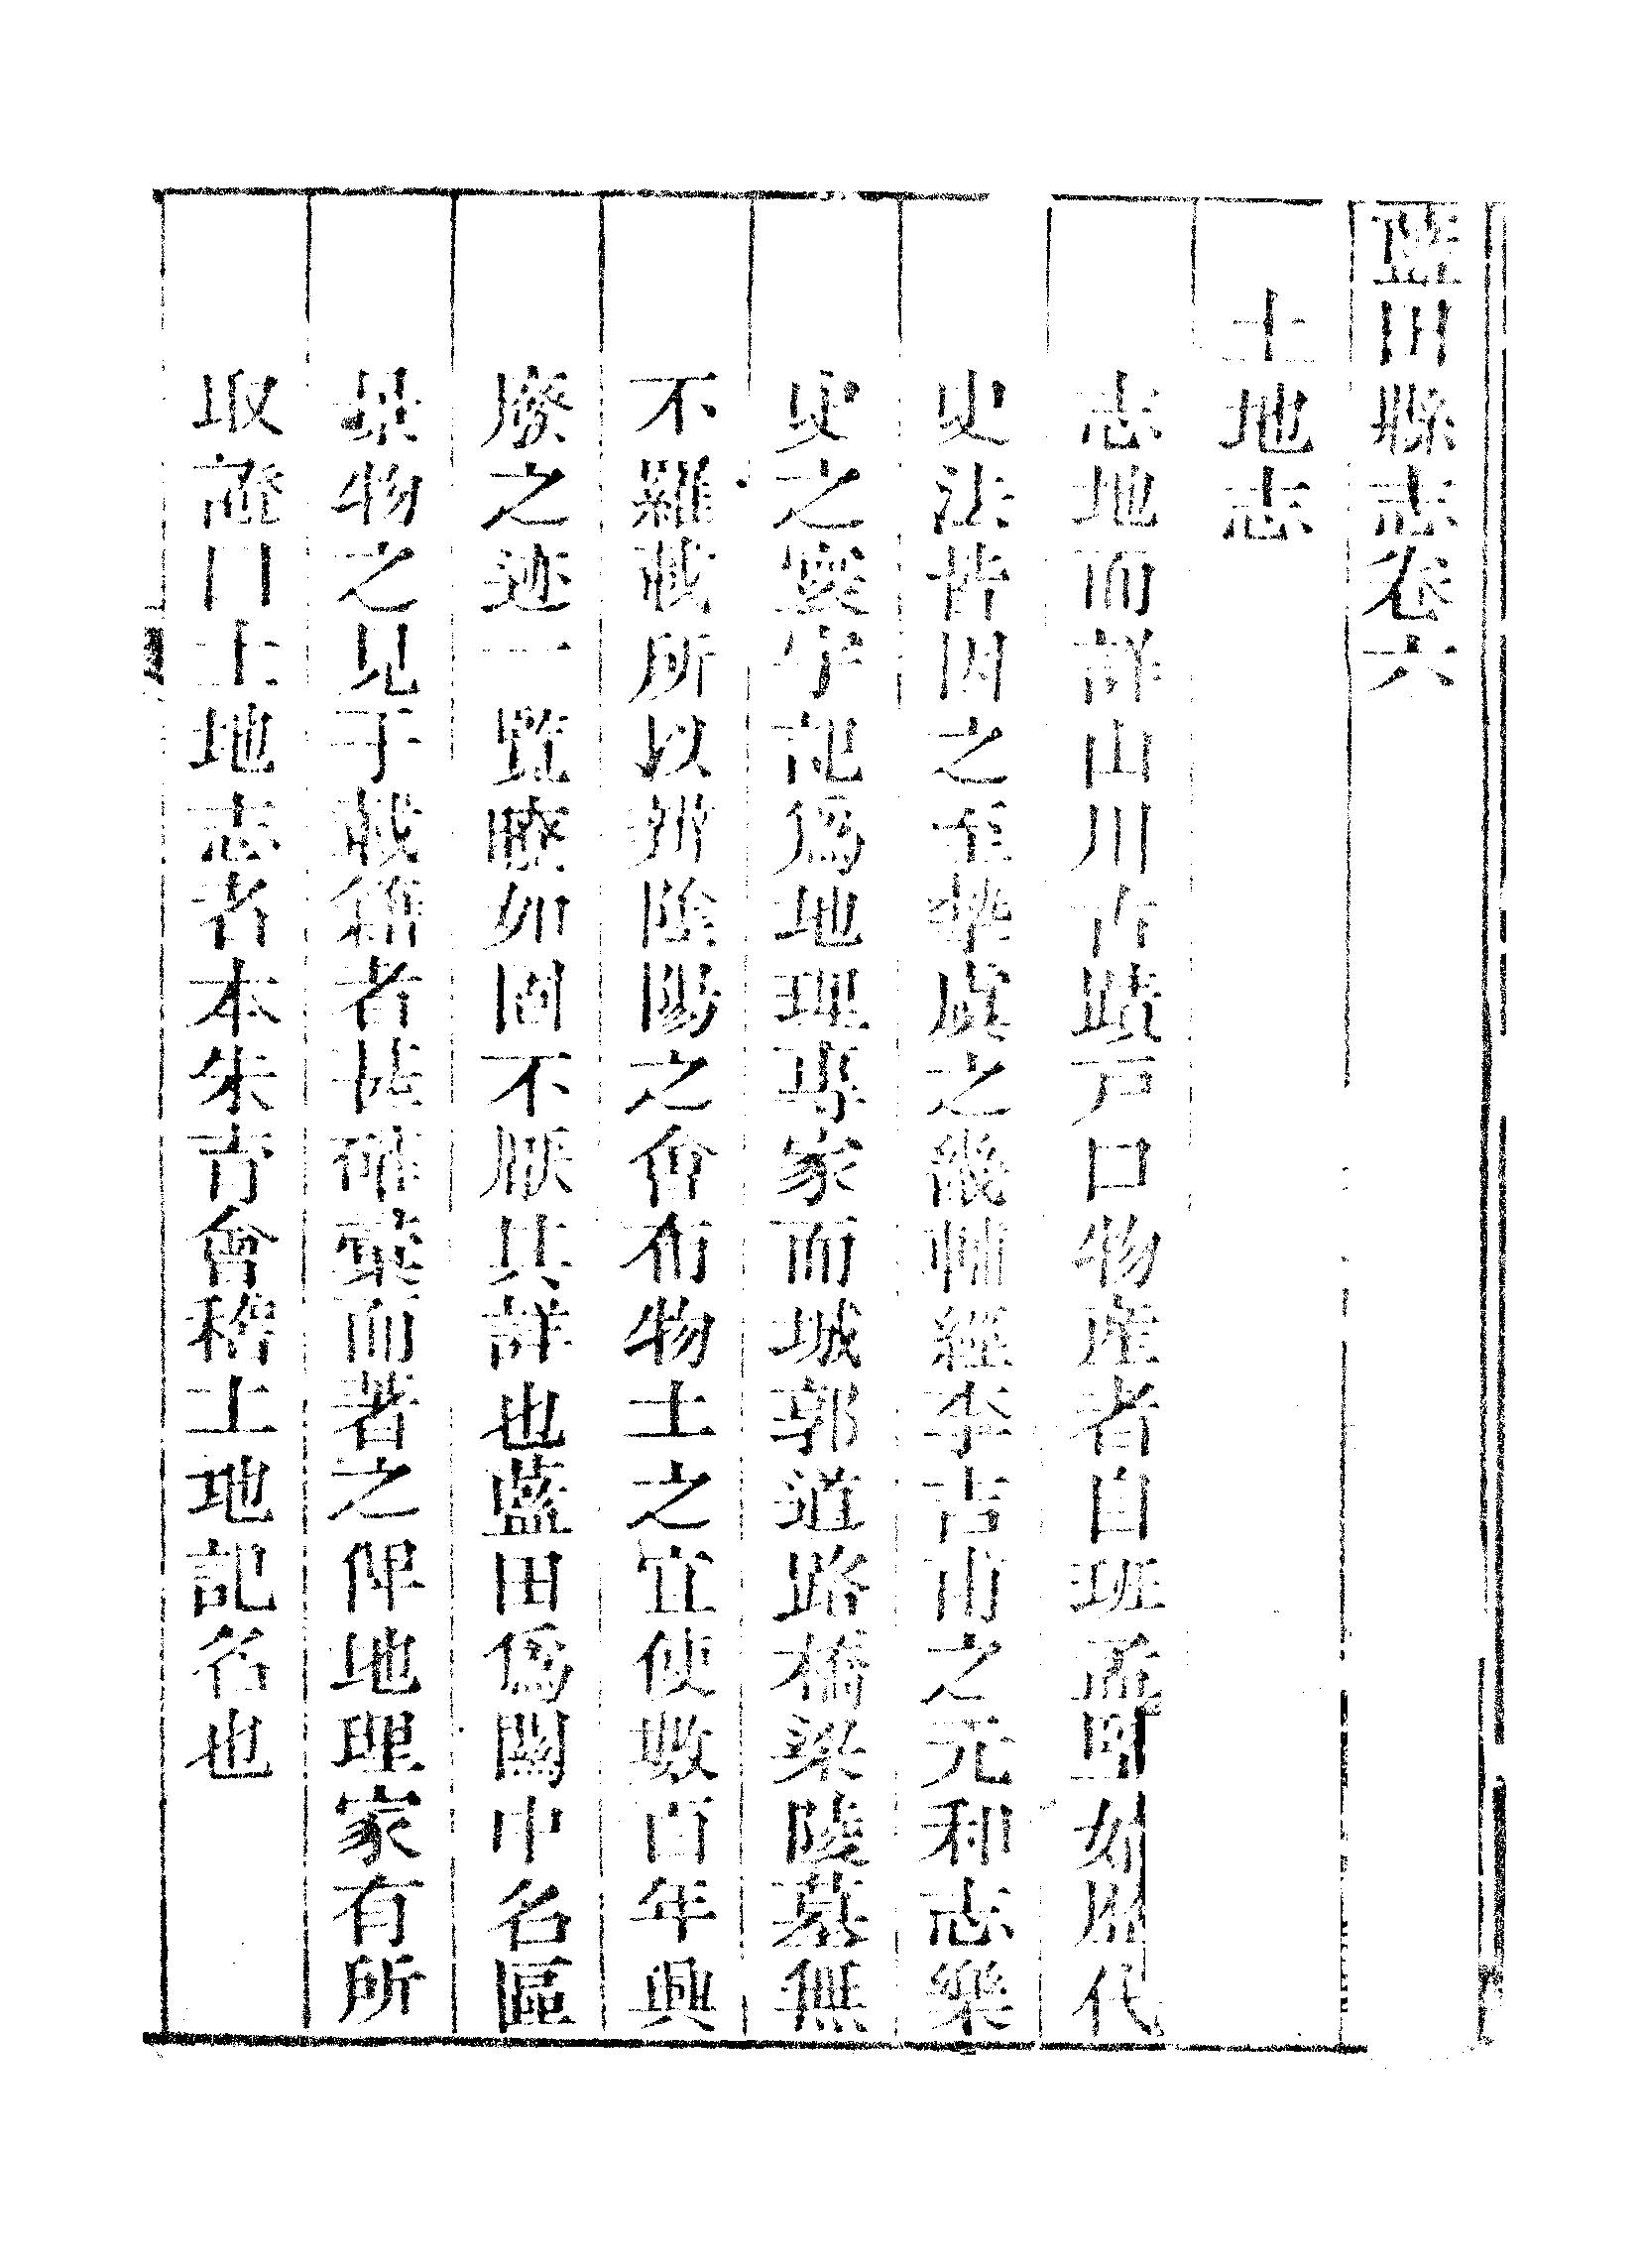 藍田縣志卷六
土地志
志地而詳山川古蹟戸口物産者自班孟堅始歴代
史法皆因之至摯虞之畿輔經李吉甫之元和志樂
史之寰宇記爲地理專家而城郭道路橋梁陵墓無
不羅載所以辨陰陽之會布物土之宜使數百年興
廢之迹一覽瞭如固不厭其詳也藍田爲關中名區
景物之見于載籍者甚確彙而著之俾地理家有所
取證曰土地志者本朱育會稽土地記名也